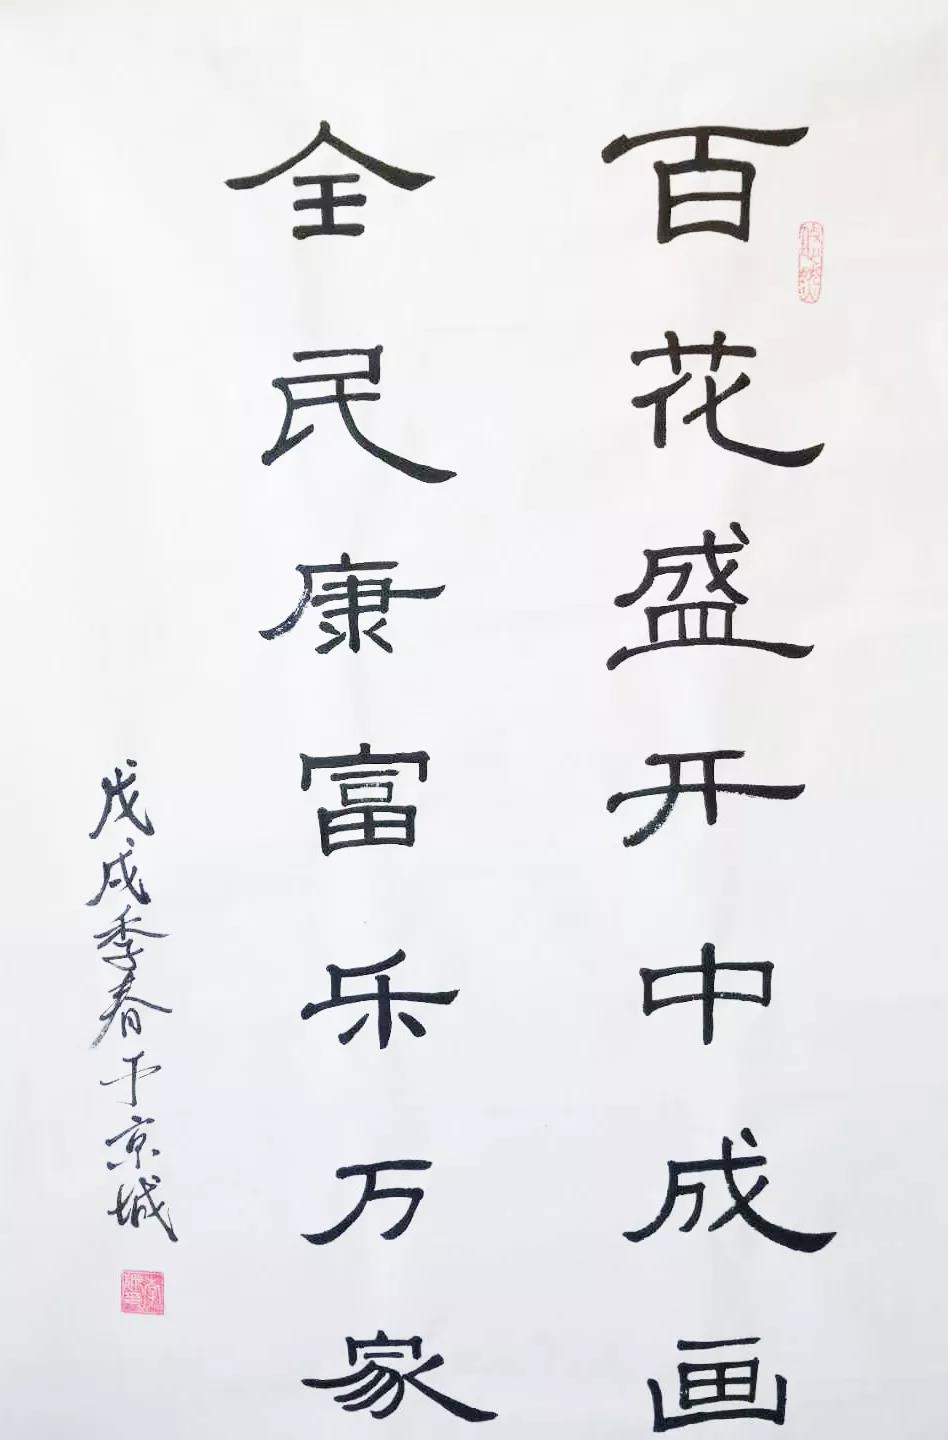 百花盛开中成画
全民康富乐万家
戊戌季春于京城